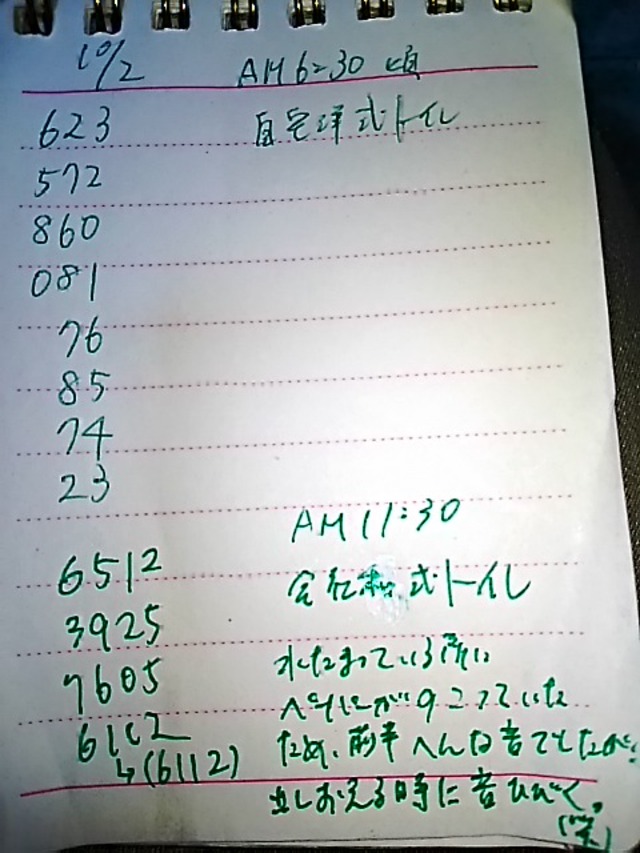 10/2 AM6:30 頃
623 自宅洋式トイレ
572
860
081
76
85
74
23
AM 11:30
6512
会社和式トイレ
3925
水たまっている所に
7605
ペーパーがのこっていた
6102
ため、前半へんな音でしたが、
↳(6112)
出しおえる時に音ひびく。
(笑)